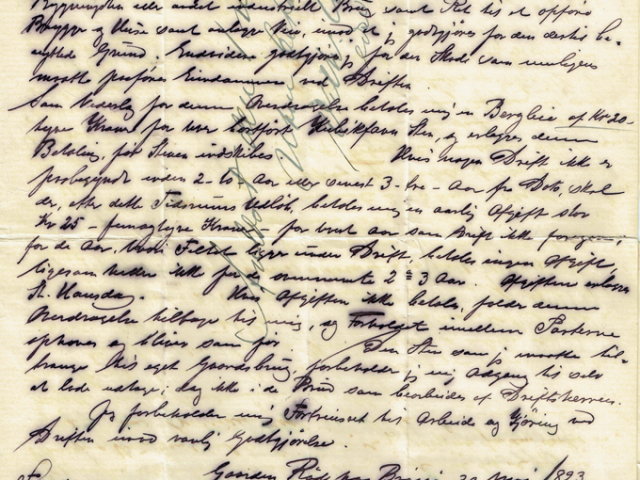 Bygningsten eller andet industrielt Brug samt Ret til at opføre
Brygge og Huse samt anlægge Vei, imod at jeg godtgjøres for den dertil be-
nyttede Grund. Endvidere godtgjøres jeg for den Skade som muligens
maatte paaføres Eiendommen ved Driften
Som Vederlag for denne Overdragelse betales mig en Bergleie af Kr 20-
tyve Kroner for hver bortført Kubikfavn Sten, og erlægges denne
Betaling, før Stenen indskibes Hvis nogen Drift ikke er
paabegyndt inden 2 - to Aar eller senest 3 - tre - Aar fra Dato, skal
der, efter dette Tidsrums Udløb, betales mig en aarlig Afgift stor
Kr 25 - femogtyve Kroner - for hvert Aar som Drift ikke foregaar,
for de Aar, hvori Feltet ligger under Drift, betales ingen Afgift
ligesom heller ikke for de 2 à 3 Aar. Afgiften erlægges
St. Hansdag. Hvis Afgiften ikke betales, falder denne
Overdragelse tilbage til mig, og Forholdet imellem Parterne
ophører og bliver som før Den Sten som jeg maatte til-
trænge til eget Gaardsbrug, forbeholder jeg mig Adgang til selv
at lade udtage; dog ikke i de Brud som bearbeides af Driftsherren.
Jeg forbeholder mig Fortrinsret til Arbeide og Kjøring ved
Driften imod vanlig Godtgjørelse.
Gaarden 1893